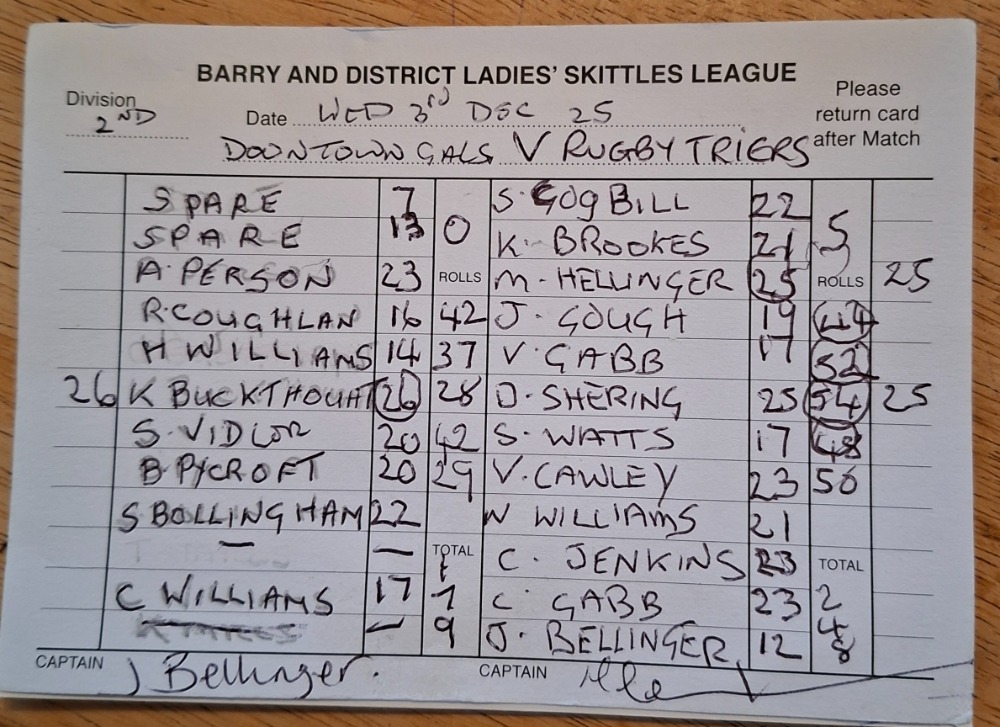 BARRY AND DISTRICT LADIES' SKITTLES LEAGUE
Division 2ND
Date WED 3rd DEC 25
Please return card after Match
DOONTOWN GALS V RUGBY TRIERS
SPARE 7 0 S. GOGBILL 22 5
SPARE 13 K. BROOKES 21
A. PERSON 23 ROLLS M. HELLINGER 25 ROLLS 25
R. COUGHLAN 16 42 J. GOUGH 19 44
H WILLIAMS 14 37 V. GABB 17 52
26 K BUCKTHOUAT 26 28 D. SHERING 25 54 25
S. VIDLOR 20 42 S. WATTS 17 48
B. PYCROFT 20 29 V. CAWLEY 23 50
S BOLLINGHAM 22 W WILLIAMS 21
— — TOTAL C. JENKINS 23 TOTAL
C WILLIAMS 17 179 C. GABB 23 248
— J. BELLINGER 12
CAPTAIN J Bellinger. CAPTAIN